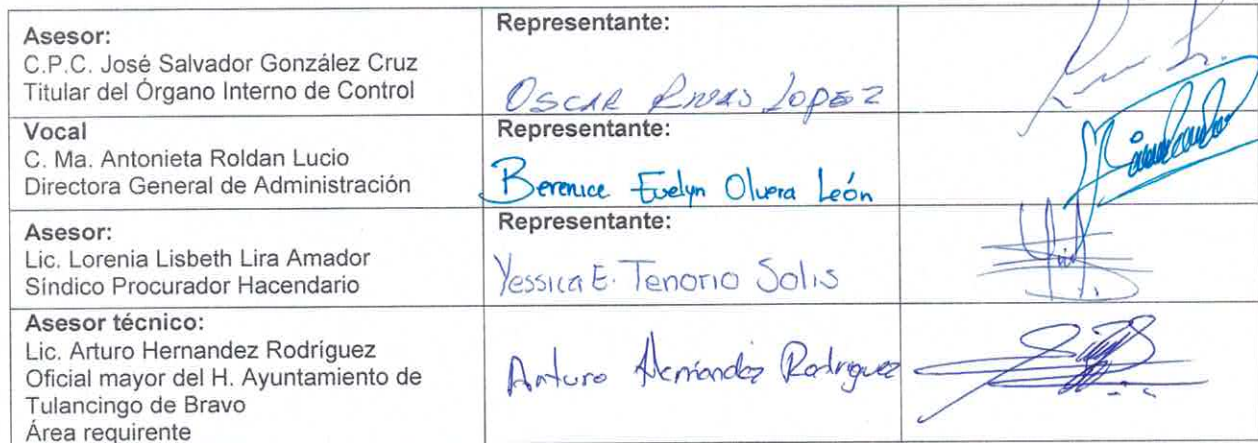 Asesor:
C.P.C. José Salvador González Cruz
Titular del Órgano Interno de Control
Representante:
OSCAR RIVAS LOPEZ
Vocal
C. Ma. Antonieta Roldan Lucio
Directora General de Administración
Representante:
Berenice Evelyn Olvera León
Asesor:
Lic. Lorenia Lisbeth Lira Amador
Síndico Procurador Hacendario
Representante:
Yessica E. Tenorio Solis
Asesor técnico:
Lic. Arturo Hernandez Rodríguez
Oficial mayor del H. Ayuntamiento de
Tulancingo de Bravo
Área requirente
Arturo Hernández Rodríguez